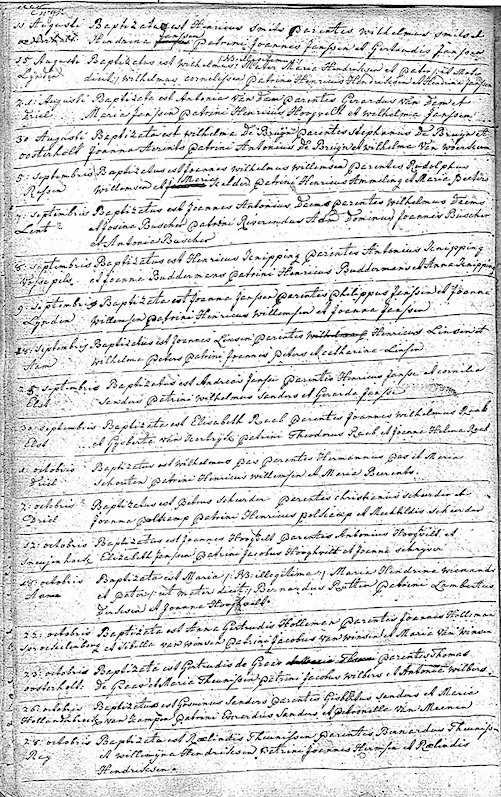 11 Augusti Baptizatus est Henricus Smits Parentes Wilhelmus Smits et
Hendrina Janssen Patrini Joannes Janssen et Gertrudis Janssen
15 Augusti Baptizatus est Wilhelmus Mater Maria Hendriksen et Pater
Lynden Wilhelmus Cornelissen Patrini Henricus Hendriksen et Hendrina Janssen
21 Augusti Baptizata est Antonia Van Dam Parentes Gerardus Van Dam et
Driel Maria Janssen Patrini Henricus Hoogvelt et Wilhelmia Janssen
30 Augusti Baptizata est Wilhelma De Bruyn Parentes Stephanus De Bruyn et
Oosterholt Joanna Arents Patrini Antonius De Bruyn et Wilhelma Van Weerkum
5 Septembris Baptizatus est Joannes Wilhelmus Willemsen Parentes Rudolphus
Ressen Willemsen et Maria Kelder Patrini Henricus Ammeling et Maria Peters
7 Septembris Baptizatus est Joannes Antonius Deems Parentes Wilhelmus Deems
Lent et Josina Buscher Patrini Reverendus Adm Dominus Joannes Buscher
et Antonia Buscher
8 Septembris Baptizatus est Henricus Knipping Parentes Antonius Knipping
et Joanna Buddermans Patrini Henricus Buddermans et Anna Knipping
9 Septembris Baptizata est Joanna Janssen Parentes Philippus Janssen et Joanna
Lynden Willemsen Patrini Henricus Willemsen et Joanna Janssen
Septembris Baptizatus est Joannes Linsen Parentes Henricus Linsen et
Ham Wilhelma Peters Patrini Joannes Peters et Catharina Linsen
25 Septembris Baptizatus est Andreas Jansse Parentes Henricus Jansse et Cornilia
Elst Sanders Patrini Wilhelmus Sanders et Gerarda Jansse
30 Septembris Baptizata est Elisabeth Raab Parentes Joannes Wilhelmus Raab
Elst et Gysberta Van Kortryk Patrini Theodorus Raab et Joanna Helena Raab
1 Octobris Baptizatus est Wilhelmus Pas Parentes Hermannus Pas et Maria
Driel Schouten Patrini Henricus Willemsen et Maria Berents
2 Octobris Baptizatus est Petrus Scheerder Parentes Christianus Scheerder et
Driel Joanna Polskamp Patrini Henricus Polskamp et Mechtildis Scheerder
12 Octobris Baptizatus est Joannes Hoogvelt Parentes Antonius Hoogvelt et
Elizabeth Jansen Patrini Jacobus Hooghvelt et Joanna Schryver
Octobris Baptizata est Maria /: NB: illegitima :/ Maria Hendrina Wienands
Hamen et Pater /: ut Mater dicit :/ Bernardus Rutten Patrini Lambertus
Derksen et Joanna Hooghvelt
22 Octobris Baptizata est Anna Gertrudis Holleman Parentes Joannes Holleman
et Sibilla Van Winsen Patrini Jacobus Van Winsen et Maria Van Winsen
23 Octobris Baptizata est Gertrudis De Graav Parentes Thomas
Oosterholt De Graav et Maria Theunissen Patrini Jacobus Wilbers et Antonia Wilbers
26 Octobris Baptizatus est Gosuinus Sanders Parentes Sanders et Maria
Hollanderbroek Van Kampen Patrini Everardus Sanders et Petronella Van Meenen
28 Octobris Baptizata est Roelindis Theunissen Parentes Bernardus Theunissen
et Willemyna Hendriksen Patrini Joannes Hermsen et Roelindis
Hendriksen